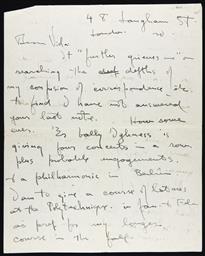 48 Langham St
London.
Dear Vida
It "further grieves me" on
searching the depths of
my confusion of correspondence etc.
to find I have not answered
your last note. How come
ever. 'Es bally Ugliness is
giving four concerts in a row
plus private engagements.
& a philharmonic in Berlin
I am to give a course of lectures
at the Polytechnique. in Jan & Feb
as pref for my longer
course in the fall